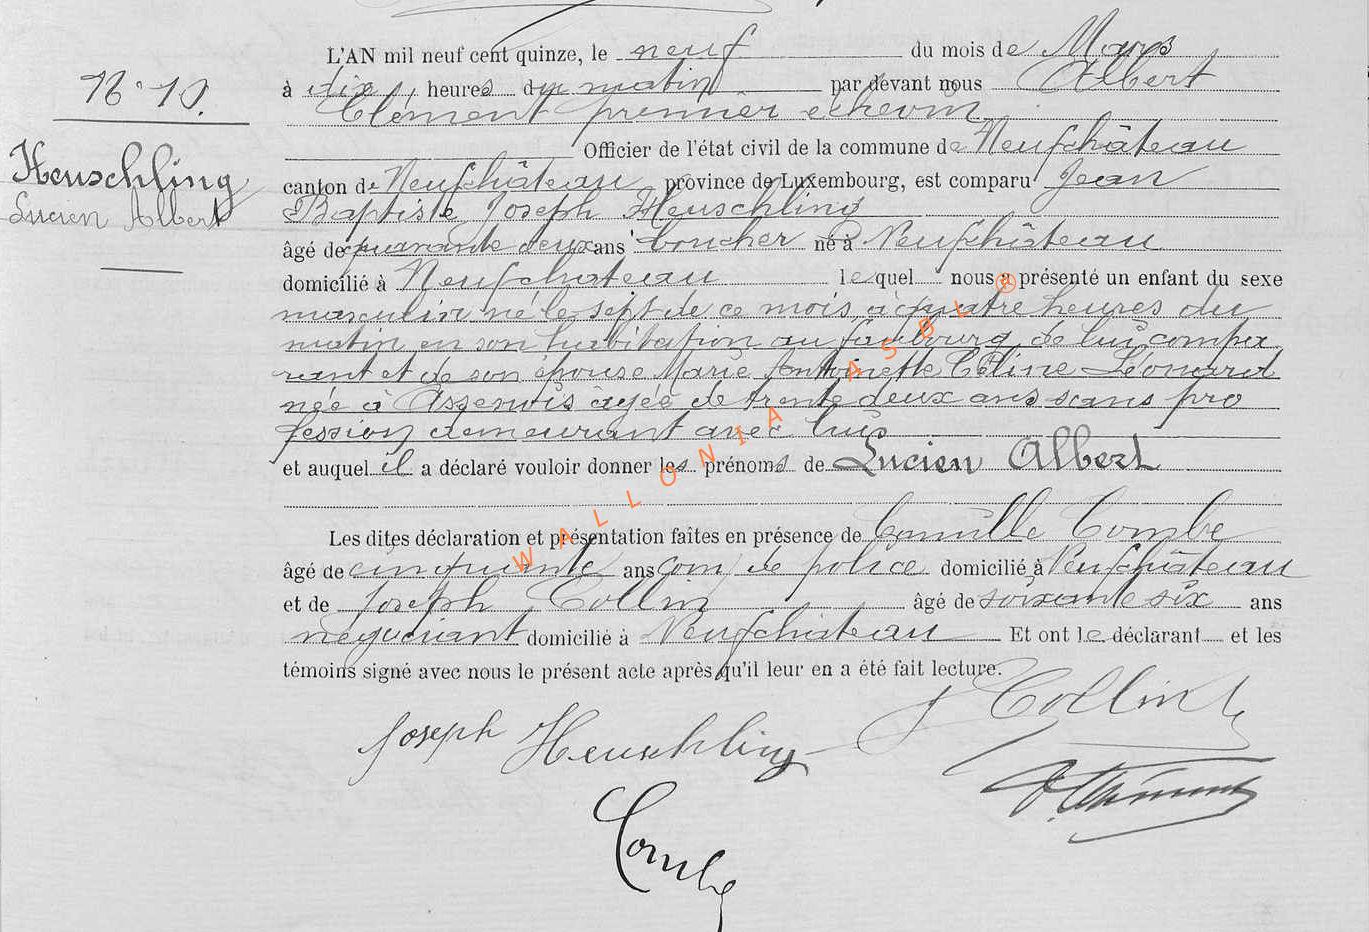 L'AN mil neuf cent quinze, le neuf du mois de Mars
N° 10.
à dix heures du matin par devant nous Albert
Clément premier échevin
Officier de l'état civil de la commune de Neufchâteau
Heuschling
Lucien Albert
canton de Neufchâteau province de Luxembourg, est comparu Jean
Baptiste Joseph Heuschling
âgé de quarante deux ans boucher né à Neufchâteau
domicilié à Neufchateau lequel nous a présenté un enfant du sexe
masculin né le sept de ce mois à quatre heures du
matin en son habitation au faubourg, de lui compa
rant et de son épouse Marie Antoinette Céline Léonard
née à Assenois âgée de trente deux ans sans pro
fession demeurant avec lui
et auquel il a déclaré vouloir donner les prénoms de Lucien Albert
Les dites déclaration et présentation faîtes en présence de Camille Combe
âgé de cinquante ans com de police domicilié à Neufchâteau
et de Joseph Collin âgé de soixante six ans
négociant domicilié à Neufchateau Et ont le déclarant et les
témoins signé avec nous le présent acte après qu'il leur en a été fait lecture.
J Collin
Joseph Heuschling
Clément
Combe
WALLONIA ASBL ®